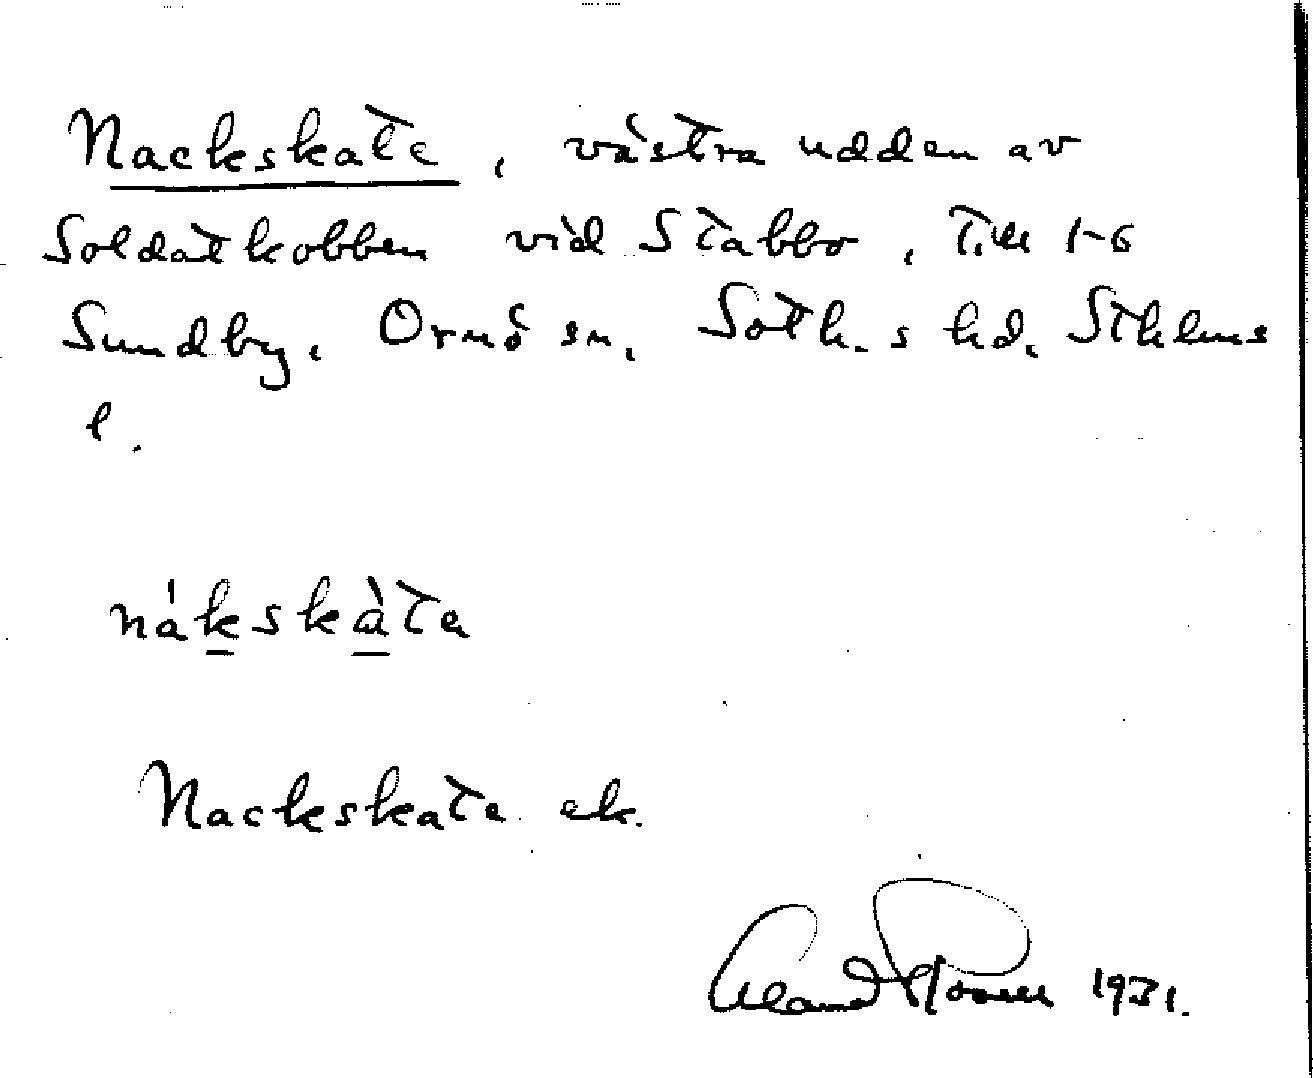 Nackskate, västra udden av
Soldatkobben vid Stabbo, Till 1-6
Sundby, Ornö sn, Sotk.s hd, Sthlms
l.
nákskàta
Nackskata ek.
1931.